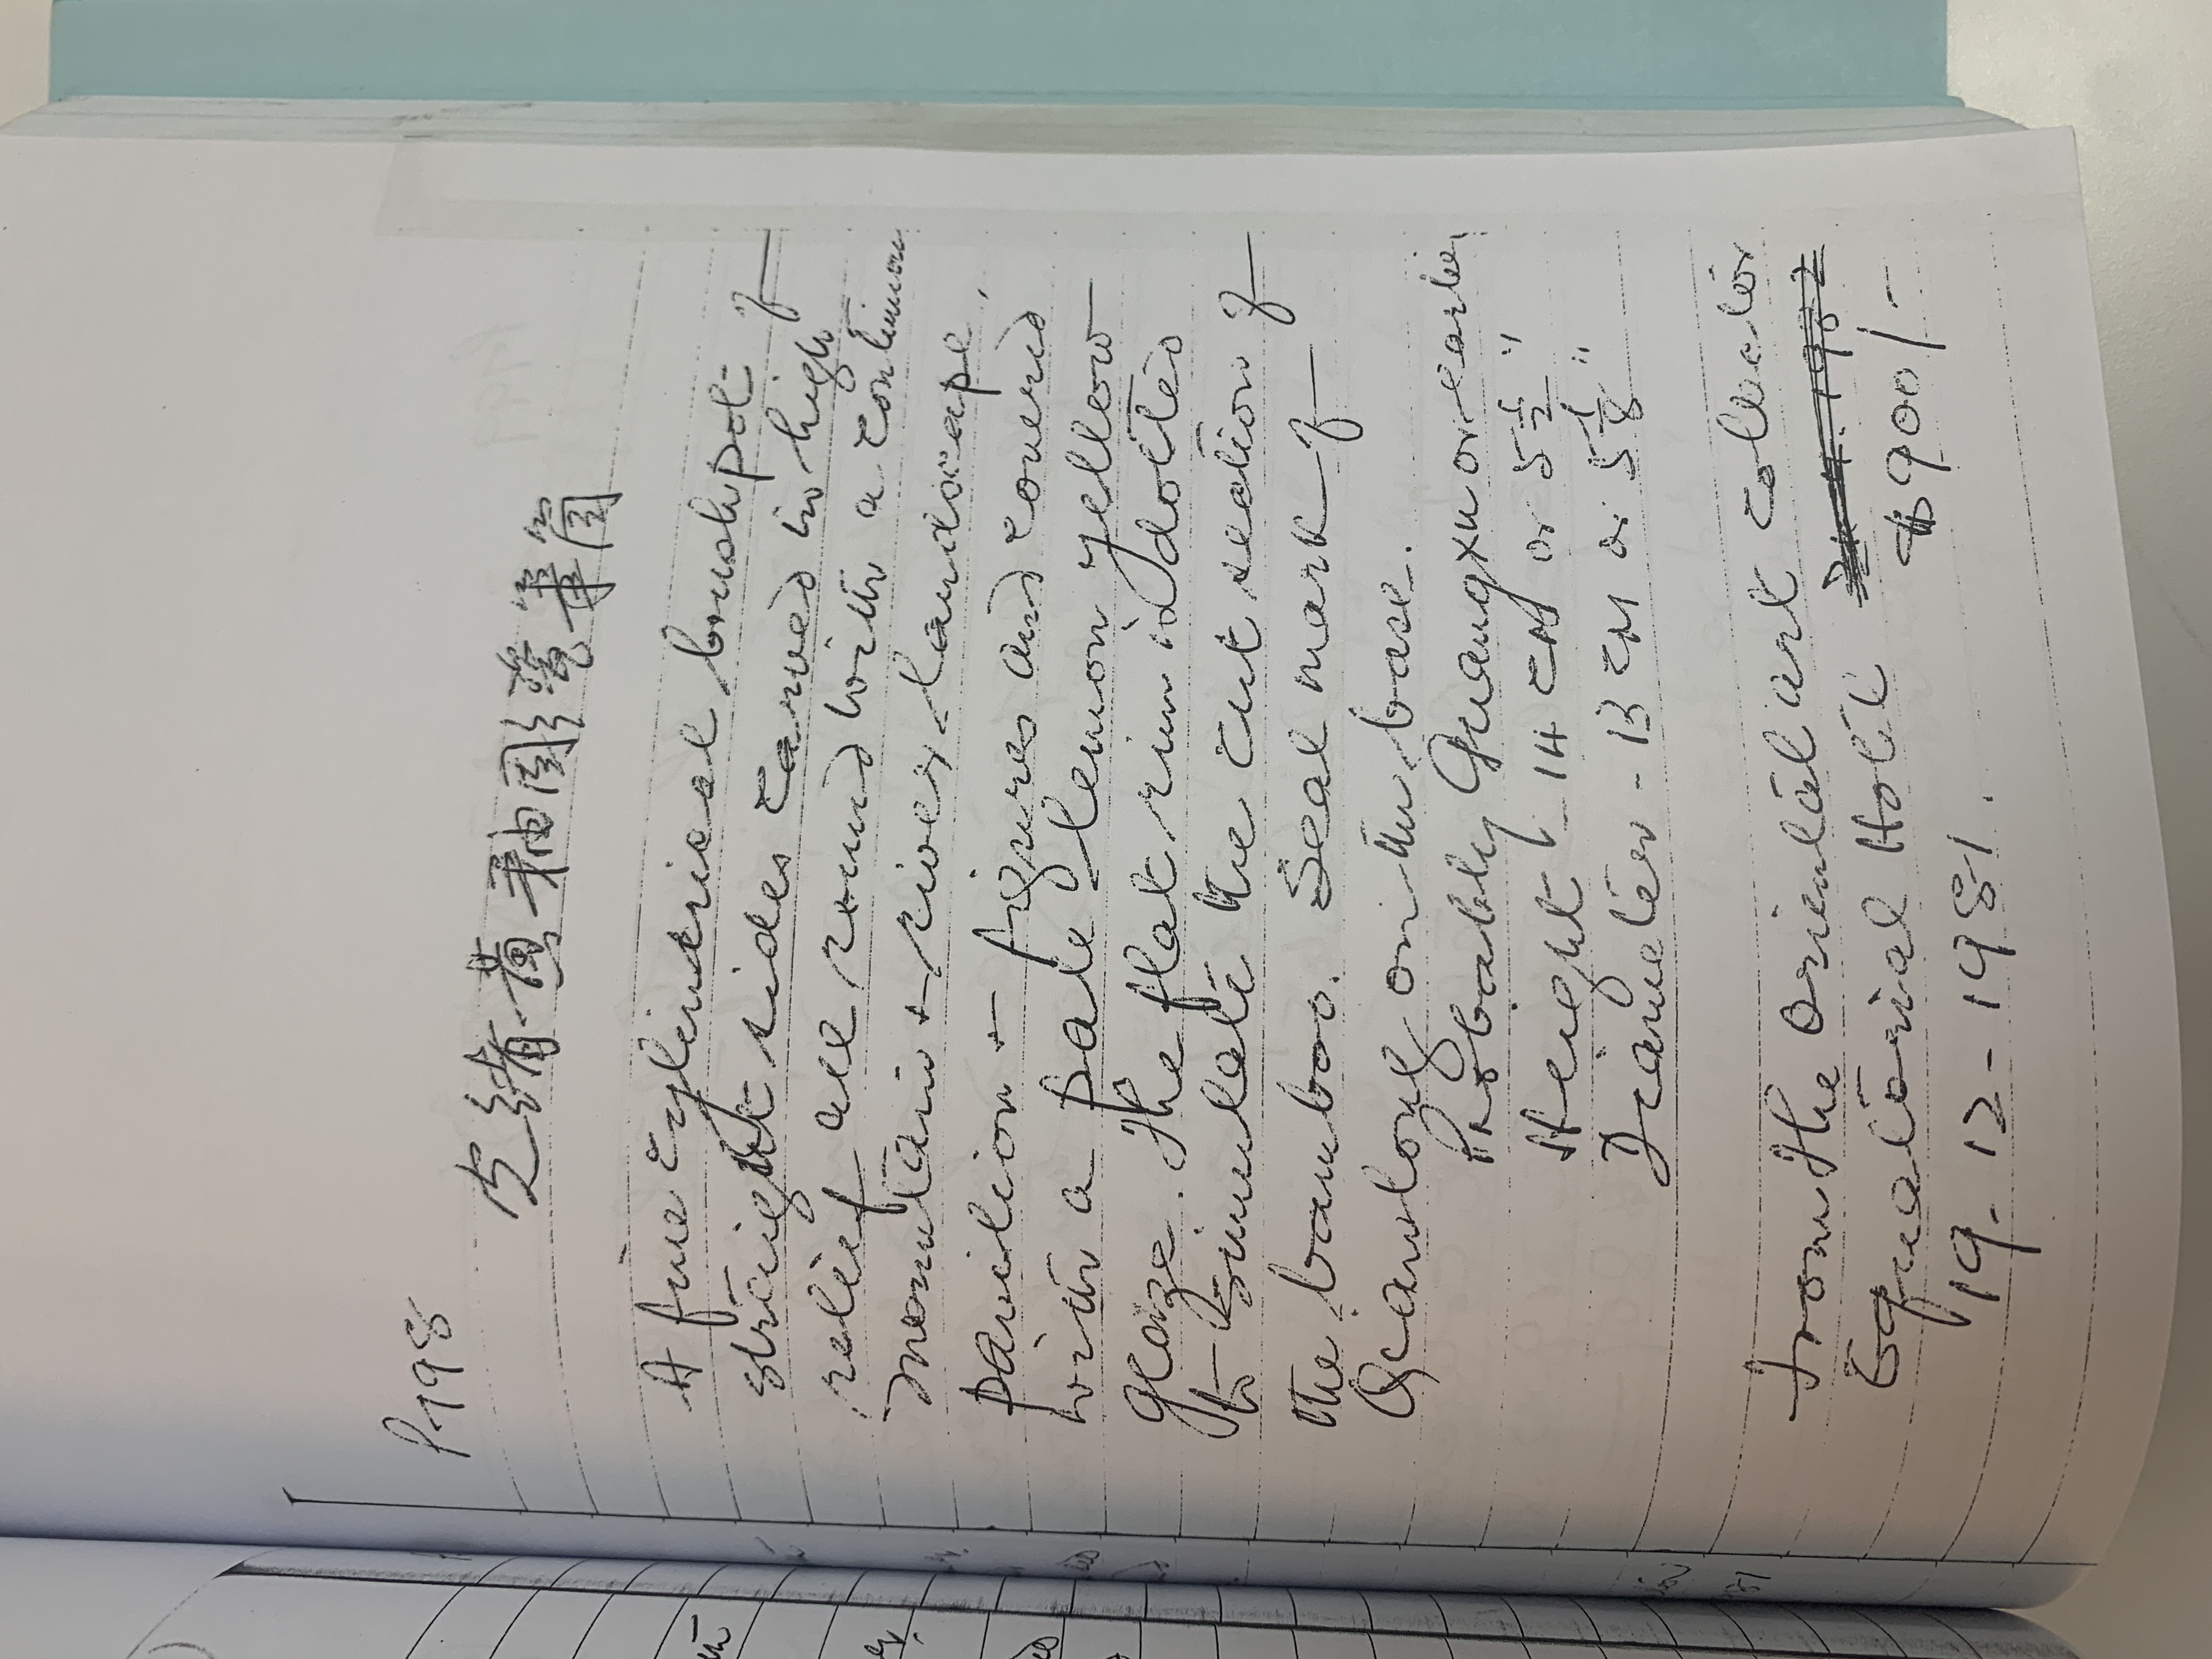 P798
光緒黃釉彫瓷筆筒
A fine cylindrical brushpot of
straight sides carved in high
relief all round with a continuous
mountain + river landscape,
pavilion + figures and covered
with a pale lemon yellow
glaze. The flat rim is dotted
to simulate the cut section of
the bamboo. Seal mark of
Qianlong on the base.
Probably Guangxu or earlier
Height - 14 CM or 5 1/2 "
Diameter - 13 CM or 5 1/8 "
From The Oriental art collector
1982
Equatorial Hotel
$900/-
19-12-1981.